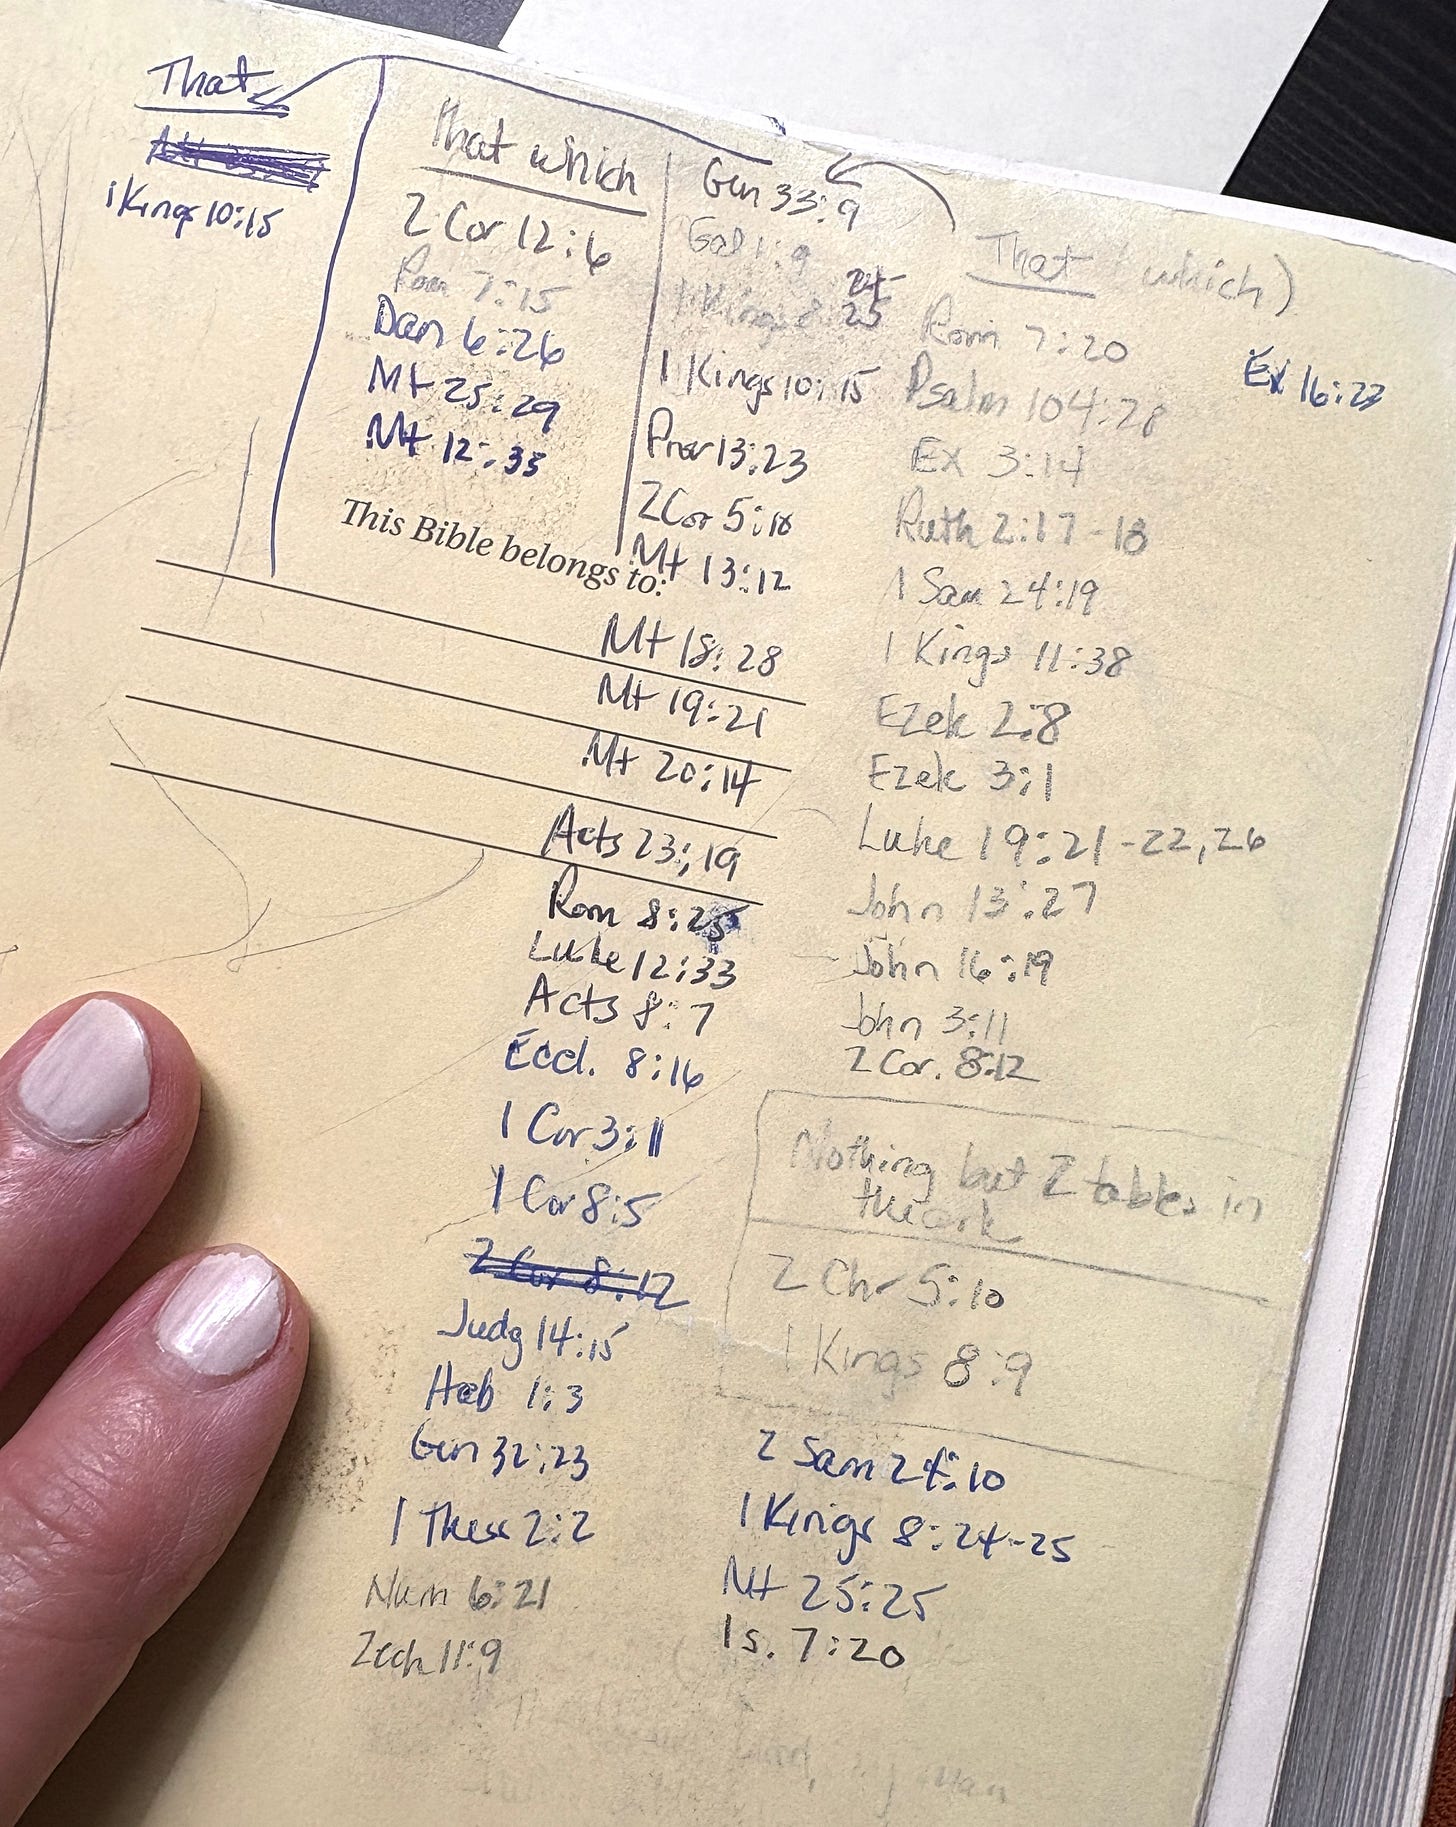 That
1 Kings 10:15
That which
2 Cor 12:6
Rom 7:15
Dan 6:26
Mt 25:29
Mt 12:35
This Bible belongs to:
Gen 33:9
Gal 1:9
1 Kings 8:25
24
1 Kings 10:15
Prov 13:23
2 Cor 5:10
Mt 13:12
Mt 18:28
Mt 19:21
Mt 20:14
Acts 23:19
Rom 8:25
Luke 12:33
Acts 8:7
Eccl. 8:16
1 Cor 3:11
1 Cor 8:5
2 Cor 8:12
Judg 14:15
Heb 1:3
Gen 32:23
1 Thess 2:2
Num 6:21
Zech 11:9
That which)
Rom 7:20
Psalm 104:28
Ex 3:14
Ruth 2:17-18
1 Sam 24:19
1 Kings 11:38
Ezek 2:8
Ezek 3:1
Luke 19:21-22, 26
John 13:27
John 16:19
John 3:11
2 Cor. 8:12
Nothing but 2 tables in
the ark
2 Chr 5:10
1 Kings 8:9
2 Sam 24:10
1 Kings 8:24-25
Mt 25:25
Is. 7:20
Ex 16:23